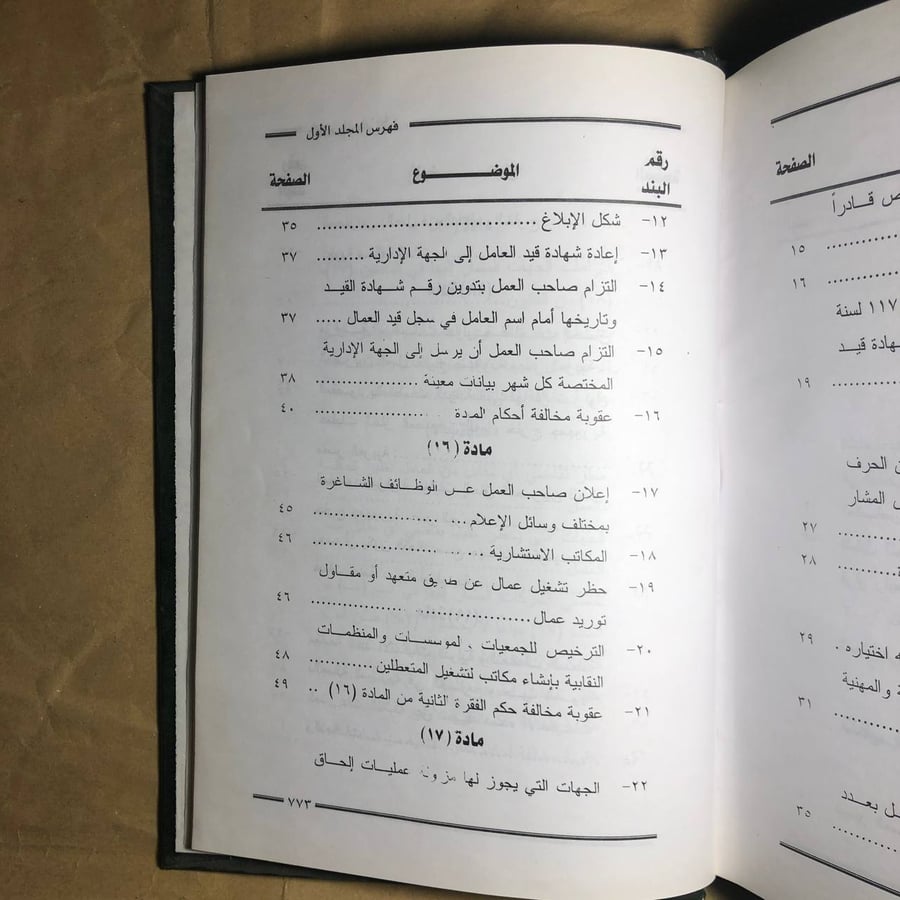 فهرس المجلد الأول
رقم البند الموضـــــــوع الصفحة
١٢- شكل الإبلاغ ................................... ٣٥
١٣- إعادة شهادة قيد العامل إلى الجهة الإدارية ......... ٣٧
١٤- التزام صاحب العمل بتدوين رقم شهادة القيد
وتاريخها أمام اسم العامل في سجل قيد العمال ..... ٣٧
١٥- التزام صاحب العمل أن يرسل إلى الجهة الإدارية
المختصة كل شهر بيانات معينة .................. ٣٨
١٦- عقوبة مخالفة أحكام المادة .................. ٤٠
مادة (١٦)
١٧- إعلان صاحب العمل عن الوظائف الشاغرة
بمختلف وسائل الإعلام ........................ ٤٥
١٨- المكاتب الاستشارية ........................ ٤٦
١٩- حظر تشغيل عمال عن طريق متعهد أو مقاول
توريد عمال ................................ ٤٦
٢٠- الترخيص للجمعيات والمؤسسات والمنظمات
النقابية بإنشاء مكاتب لتشغيل المتعطلين ............ ٤٨
٢١- عقوبة مخالفة حكم الفقرة الثانية من المادة (١٦) .. ٤٩
مادة (١٧)
٢٢- الجهات التي يجوز لها مزاولة عمليات إلحاق
٧٧٣
الصفحة
ص قادراً
١٥
١٦
١١٧ لسنة
هادة قيد
١٩
ن الحرف
المشار
٢٧
٢٨
ه اختياره . ٢٩
ة والمهنية
٣١
ل بعدد
٣٥